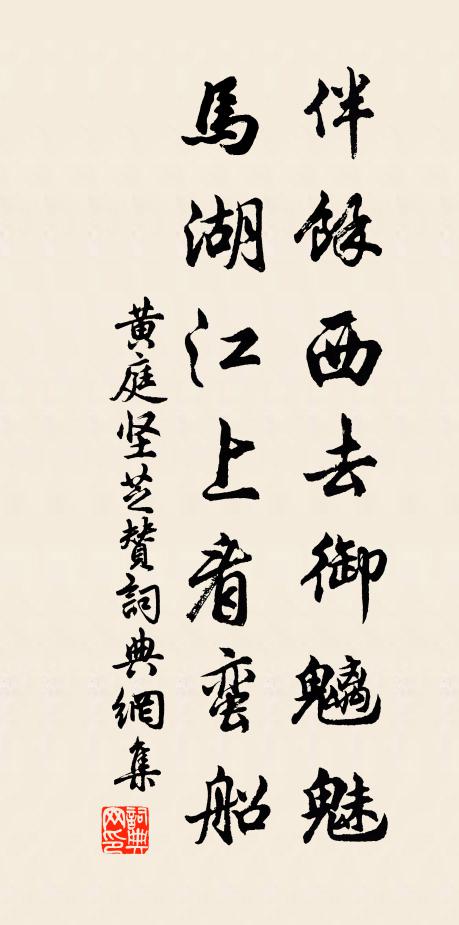 伴餘西去御魑魅
馬湖江上看蛮船
黄庭坚芝贊詞典網集
詞典网印